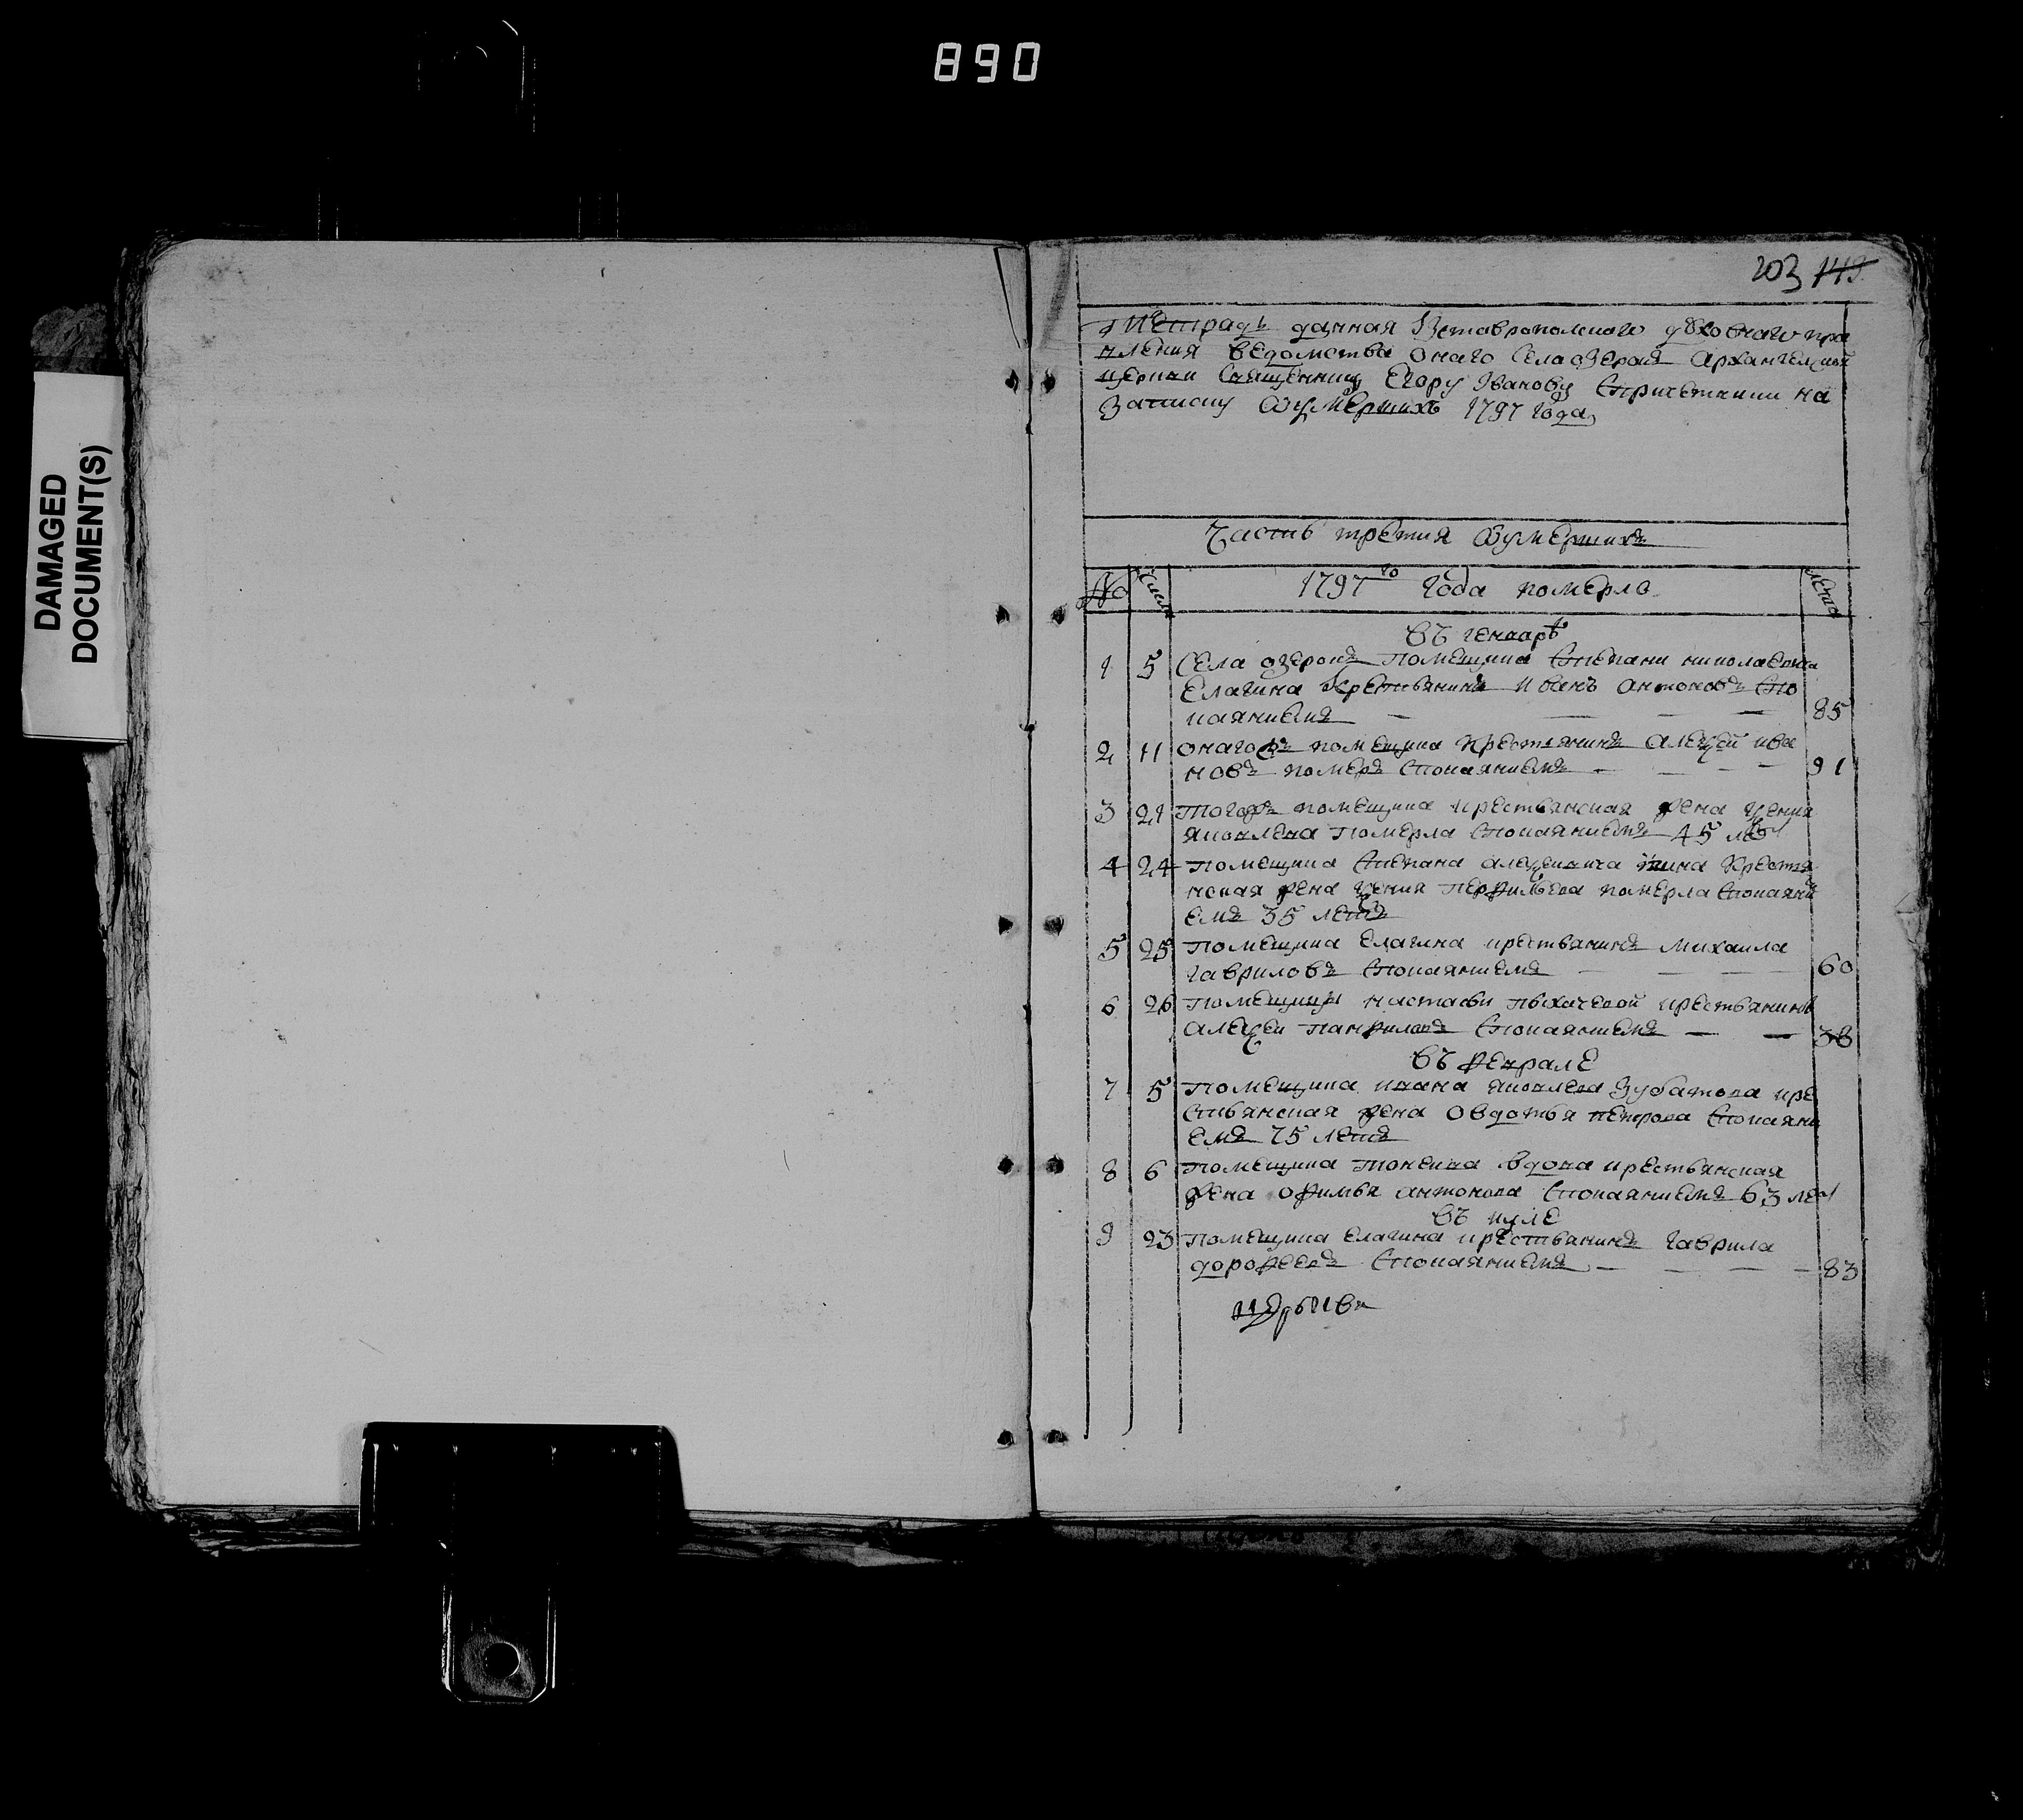 890
DAMAGED
DOCUMENT(S)
203 149
Тетрадь данная Изставропольского духовнаго пра
вления ведомства онаго Села озерак архангельской
церкви Священнику Егору Иванову Спричетники на
Записку Оумершихъ 1797 Года
Часть третия Оумершихъ
№ числа 1797го Года померло лета
въ генваре
1 5 Села озерокъ помещика Степана николаевича
Елагина Крестьянинъ Иванъ антоновъ Спо
каяниемъ 85
2 11 онагожъ помещика Крестьянинъ алексей ива
новъ померъ Спокаяниемъ 91
3 21 тогожъ помещика крестьянская жена ксения
яковлева померла Спокаяниемъ 45 лет
4 24 помещика Степана алексеевича Крестья
нская жена ксения перфильева померла Спокаяни
емъ 35 летъ
5 25 помещика Елагина крестьянинъ михаила
гавриловъ Спокаяниемъ 60
6 26 помещицы настасьи пыхачевой крестьянинъ
алексеи панфиловъ Спокаяниемъ 38
въ феврале
7 5 помещика ивана яковлева Зубатова кре
стьянская жена овдотья петрова Спокаяни
емъ 75 летъ
8 6 помещика тонеева вдова крестьянская
жена офимья антонова Спокаяниемъ 63 лет
въ июле
9 23 помещика Елагина крестьянинъ гаврила
дорофеевъ Спокаяниемъ 83